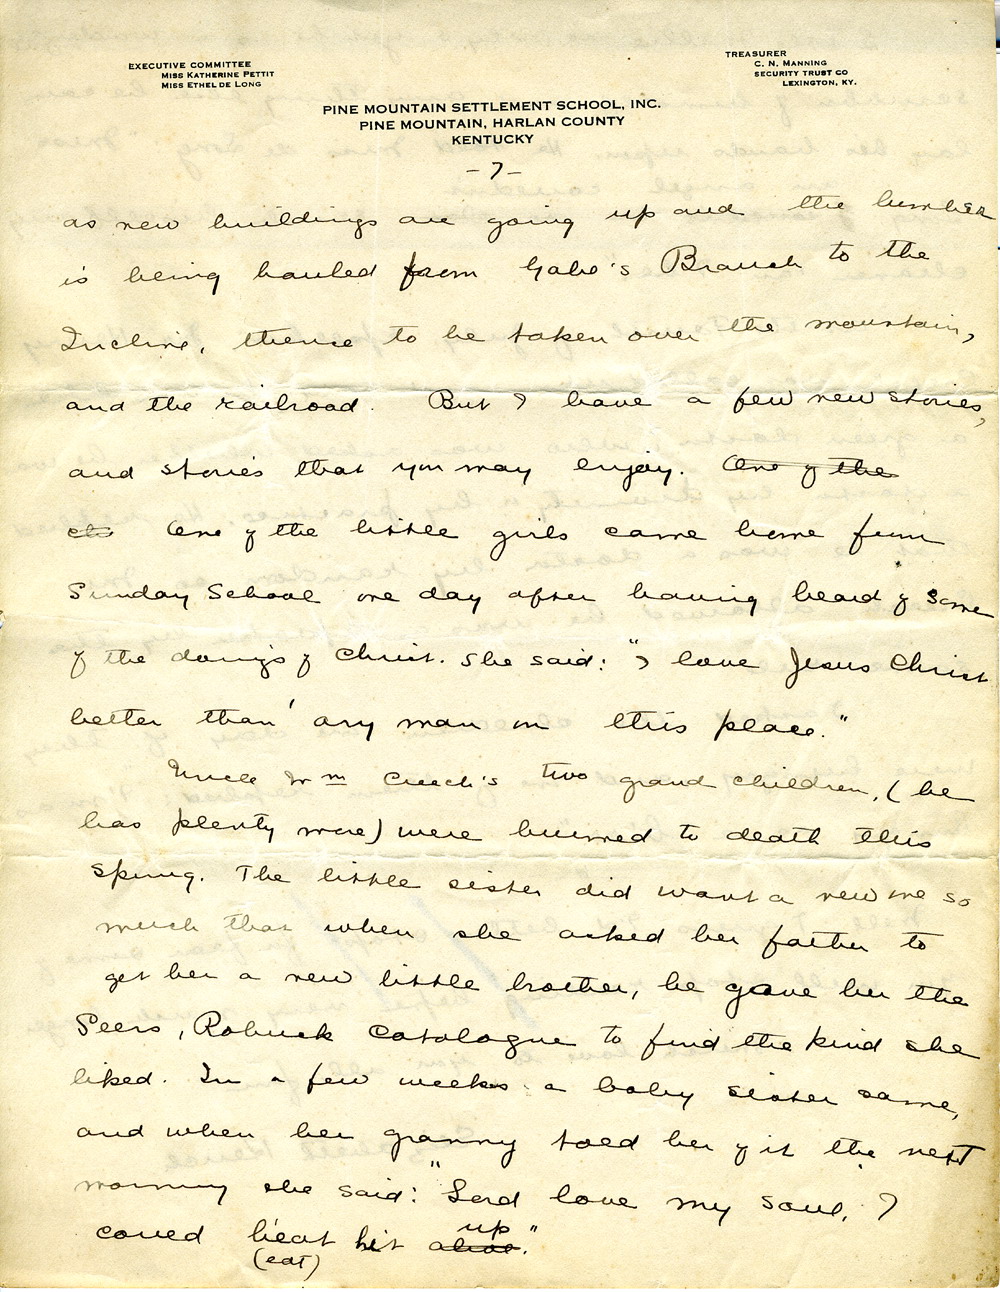 EXECUTIVE COMMITTEE
MISS KATHERINE PETTIT
MISS ETHEL DE LONG
TREASURER
C. N. MANNING
SECURITY TRUST CO
LEXINGTON, KY.
PINE MOUNTAIN SETTLEMENT SCHOOL, INC.
PINE MOUNTAIN, HARLAN COUNTY
KENTUCKY
- 7 -
as new buildings are going up and the lumber
is being hauled from Gabe's Branch to the
Incline, thence to be taken over the mountain,
and the railroad. But I have a few new stories,
and stories that you may enjoy. One of the
One of the little girls came home from
Sunday School one day after having heard of some
of the doings of Christ. She said: "I love Jesus Christ
better than' any man on this place."
Uncle Wm Creech's two grand children, (he
has plenty more) were burned to death this
spring. The little sister did want a new one so
much that when she asked her father to
get her a new little brother, he gave her the
Seers, Robuck catalogue to find the kind she
liked. In a few weeks a baby sister came,
and when her granny told her of it the next
morning she said: "Lord love my soul, I
could h'eat hit alive up."
(eat)